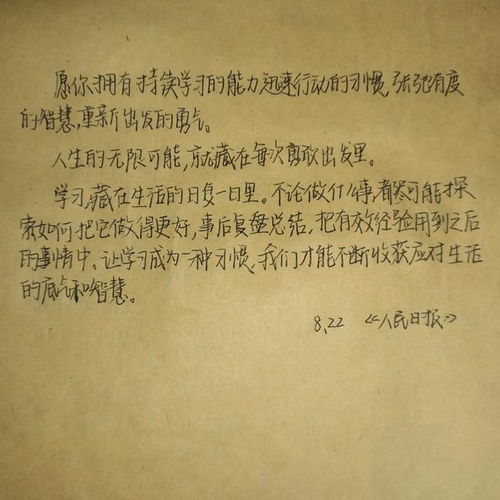 愿你拥有持续学习的能力,迅速行动的习惯,张弛有度
的智慧,重新出发的勇气。
人生的无限可能,就藏在每次勇敢出发里。
学习,藏在生活的日复一日里。不论做什么事,都尽可能探
索如何把它做得更好,事后复盘总结,把有效经验用到之后
的事情中。让学习成为一种习惯,我们才能不断收获应对生活
的底气和智慧。
8.22 《人民日报》